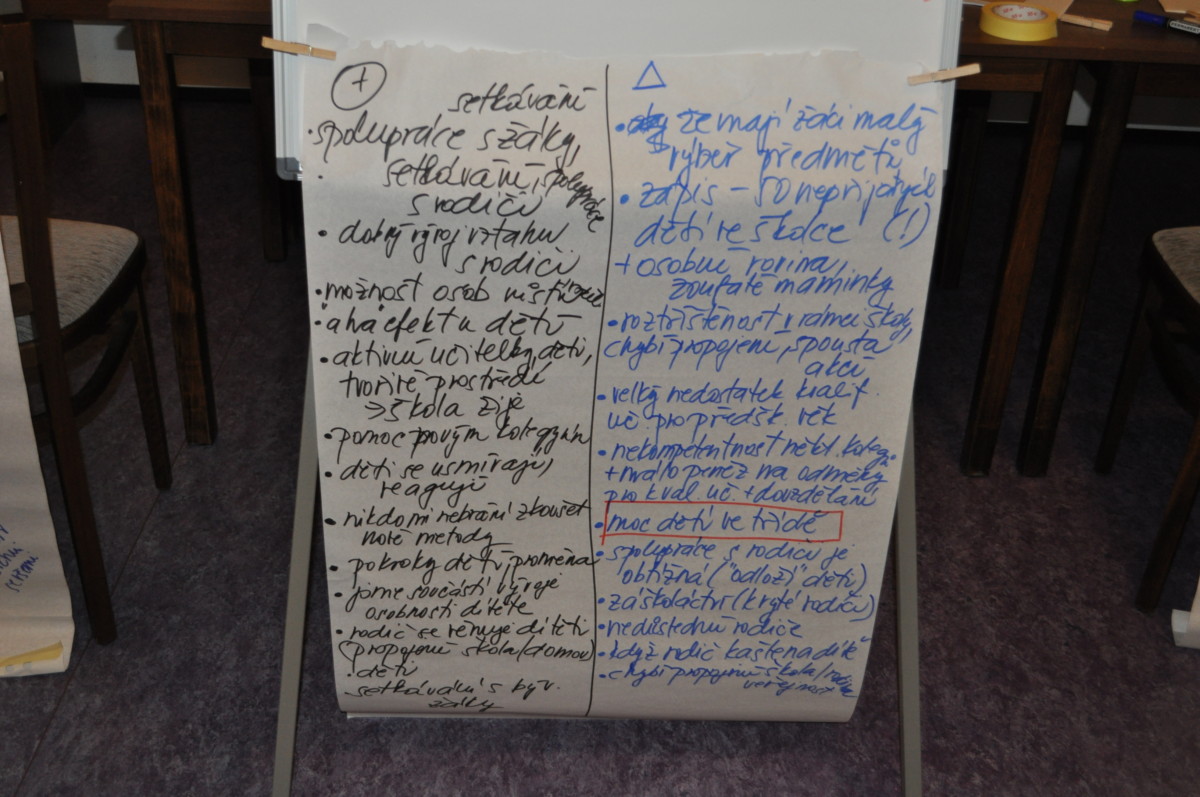 +
setkávání
• spolupráce s žáky,
setkávání, spolupráce
s rodiči
• dobrý vývoj vztahu
s rodiči
• možnost osob
• aha efekt u dětí
• aktivní učitelky, děti,
tvořivé prostředí
=> škola žije
• pomoc novým kolegyním
• děti se usmívají,
reagují
• nikdo mi nebrání zkoušet
nové metody
• pokroky dětí, proměna
• jsme součástí vývoje
osobnosti dítěte
• rodič se věnuje dítěti
(propojení škola/domov)
• děti
setkávání s býv.
žáky
△
• že mají žáci malý
výběr předmětů
• zápis – 50 nepřijatých
dětí ve školce (!)
+ osobní rovina,
zoufalé maminky
• roztříštěnost v rámci školy,
chybí propojení, spousta
akcí
• velký nedostatek kvalif.
uč. pro předšk. věk
• nekompetentnost někt. kolegů
+ málo peněz na odměny
pro kval. uč. + dovzdělání
• moc dětí ve třídě
• spolupráce s rodiči je
obtížná ("odloží" děti)
• záškoláctví (kryté rodiči)
• nedůslední rodiče
• když rodič kašle na dítě
• chybí propojení škola/rodina
veřejnost